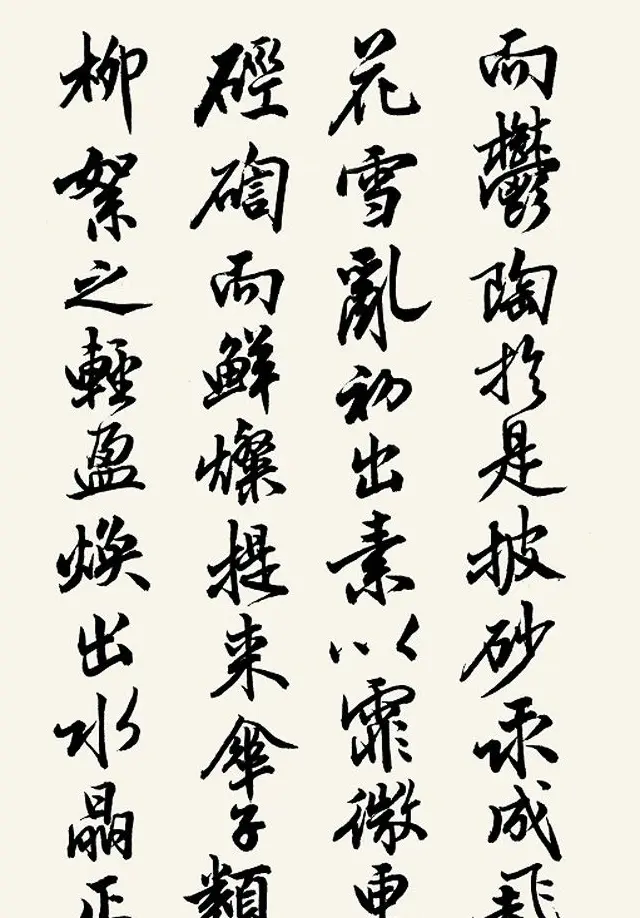 而鬱陶於是披砂承成飛
花雪亂初出素以霏微更
硜硐而鮮燦提来傘子類
柳絮之輕盈煥出水晶正